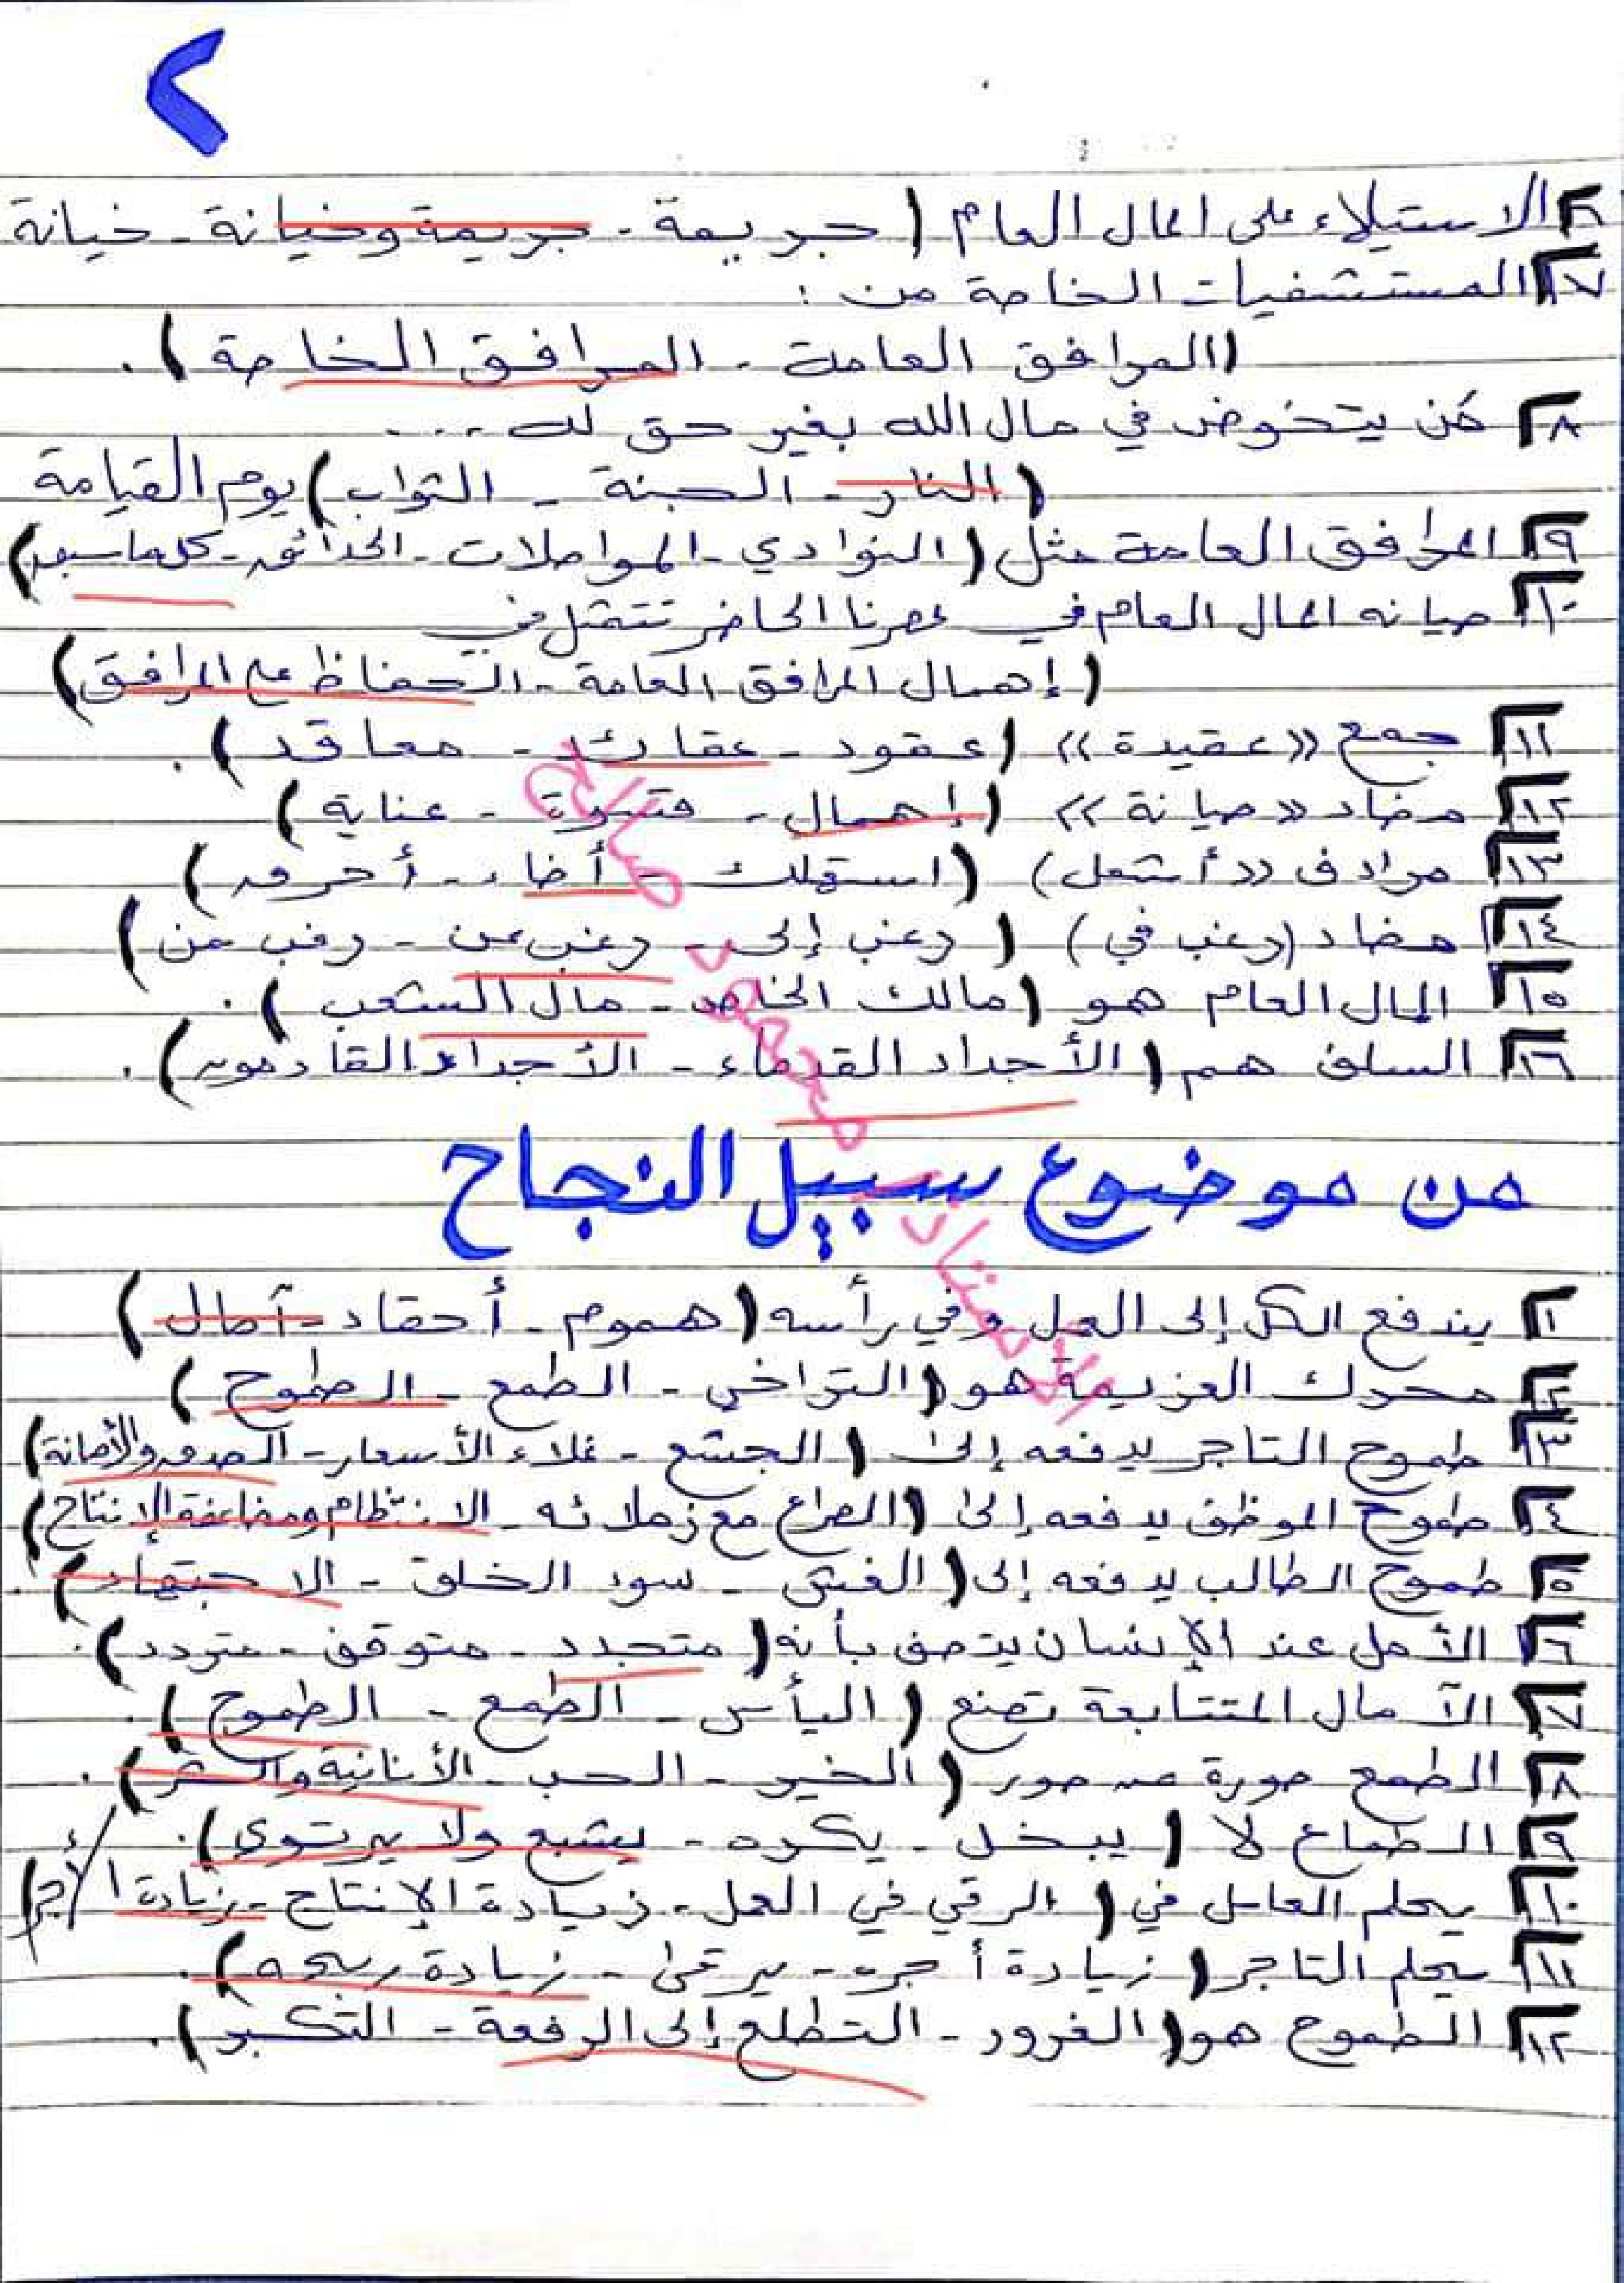 ٢
٦ الاستيلاء على المال العام ( جريمة - جريمة وخيانة - خيانة
٧ المستشفيات الخاصة من :
( المرافق العامة - المرافق الخاصة ) .
٨ من يتخوض في مال الله بغير حق له ....
( النار - الجنة - الثواب ) يوم القيامة
٩ المرافق العامة مثل ( النوادي - المواصلات - الحدائق - كل ما سبق )
١٠ صيانه المال العام في عصرنا الحاضر تتمثل في
( إهمال المرافق العامة - الحفاظ على المرافق )
١١ جمع « عقيدة » ( عقود - عقائد - معاقد ) .
١٢ مضاد « صيانة » ( إهمال - قسوة - عناية )
١٣ مرادف « أشعل ) ( استهلك - أضاء - أحرق )
١٤ مضاد ( رغب في ) ( رغب إلى - رغب عن - رغب من )
١٥ المال العام هو ( مالك الخاص - مال الشعب ) .
١٦ السلف هم ( الأجداد القدماء - الأجداد القادمون ) .
من موضوع سبيل النجاح
١ يندفع الكل إلى العمل وفي رأسه ( هموم - أحقاد - آمال )
٢ محرك العزيمة هو ( التراخي - الطمع - الطموح )
٣ طموح التاجر يدفعه إلى ( الجشع - غلاء الأسعار - الصدق والأمانة )
٤ طموح الموظف يدفعه إلى ( الصراع مع زملائه - الانتظام ومضاعفة الإنتاج )
٥ طموح الطالب يدفعه إلى ( الغش - سوء الخلق - الاجتهاد ) .
٦ الأمل عند الإنسان يتصف بأنه ( متجدد - متوقف - متردد ) .
٧ الآمال المتتابعة تصنع ( اليأس - الطمع - الطموح ) .
٨ الطمع صورة من صور ( الخير - الحب - الأنانية والشر ) .
٩ الطماع لا ( يبخل - يكره - يشبع ولا يرتوي ) .
١٠ يحلم العامل في ( الرقي في العمل - زيادة الإنتاج - زيادة أجره )
١١ يحلم التاجر ( زيادة أجره - يرقى - زيادة ربحه ) .
١٢ الطموح هو ( الغرور - التطلع إلى الرفعة - التكبر ) .